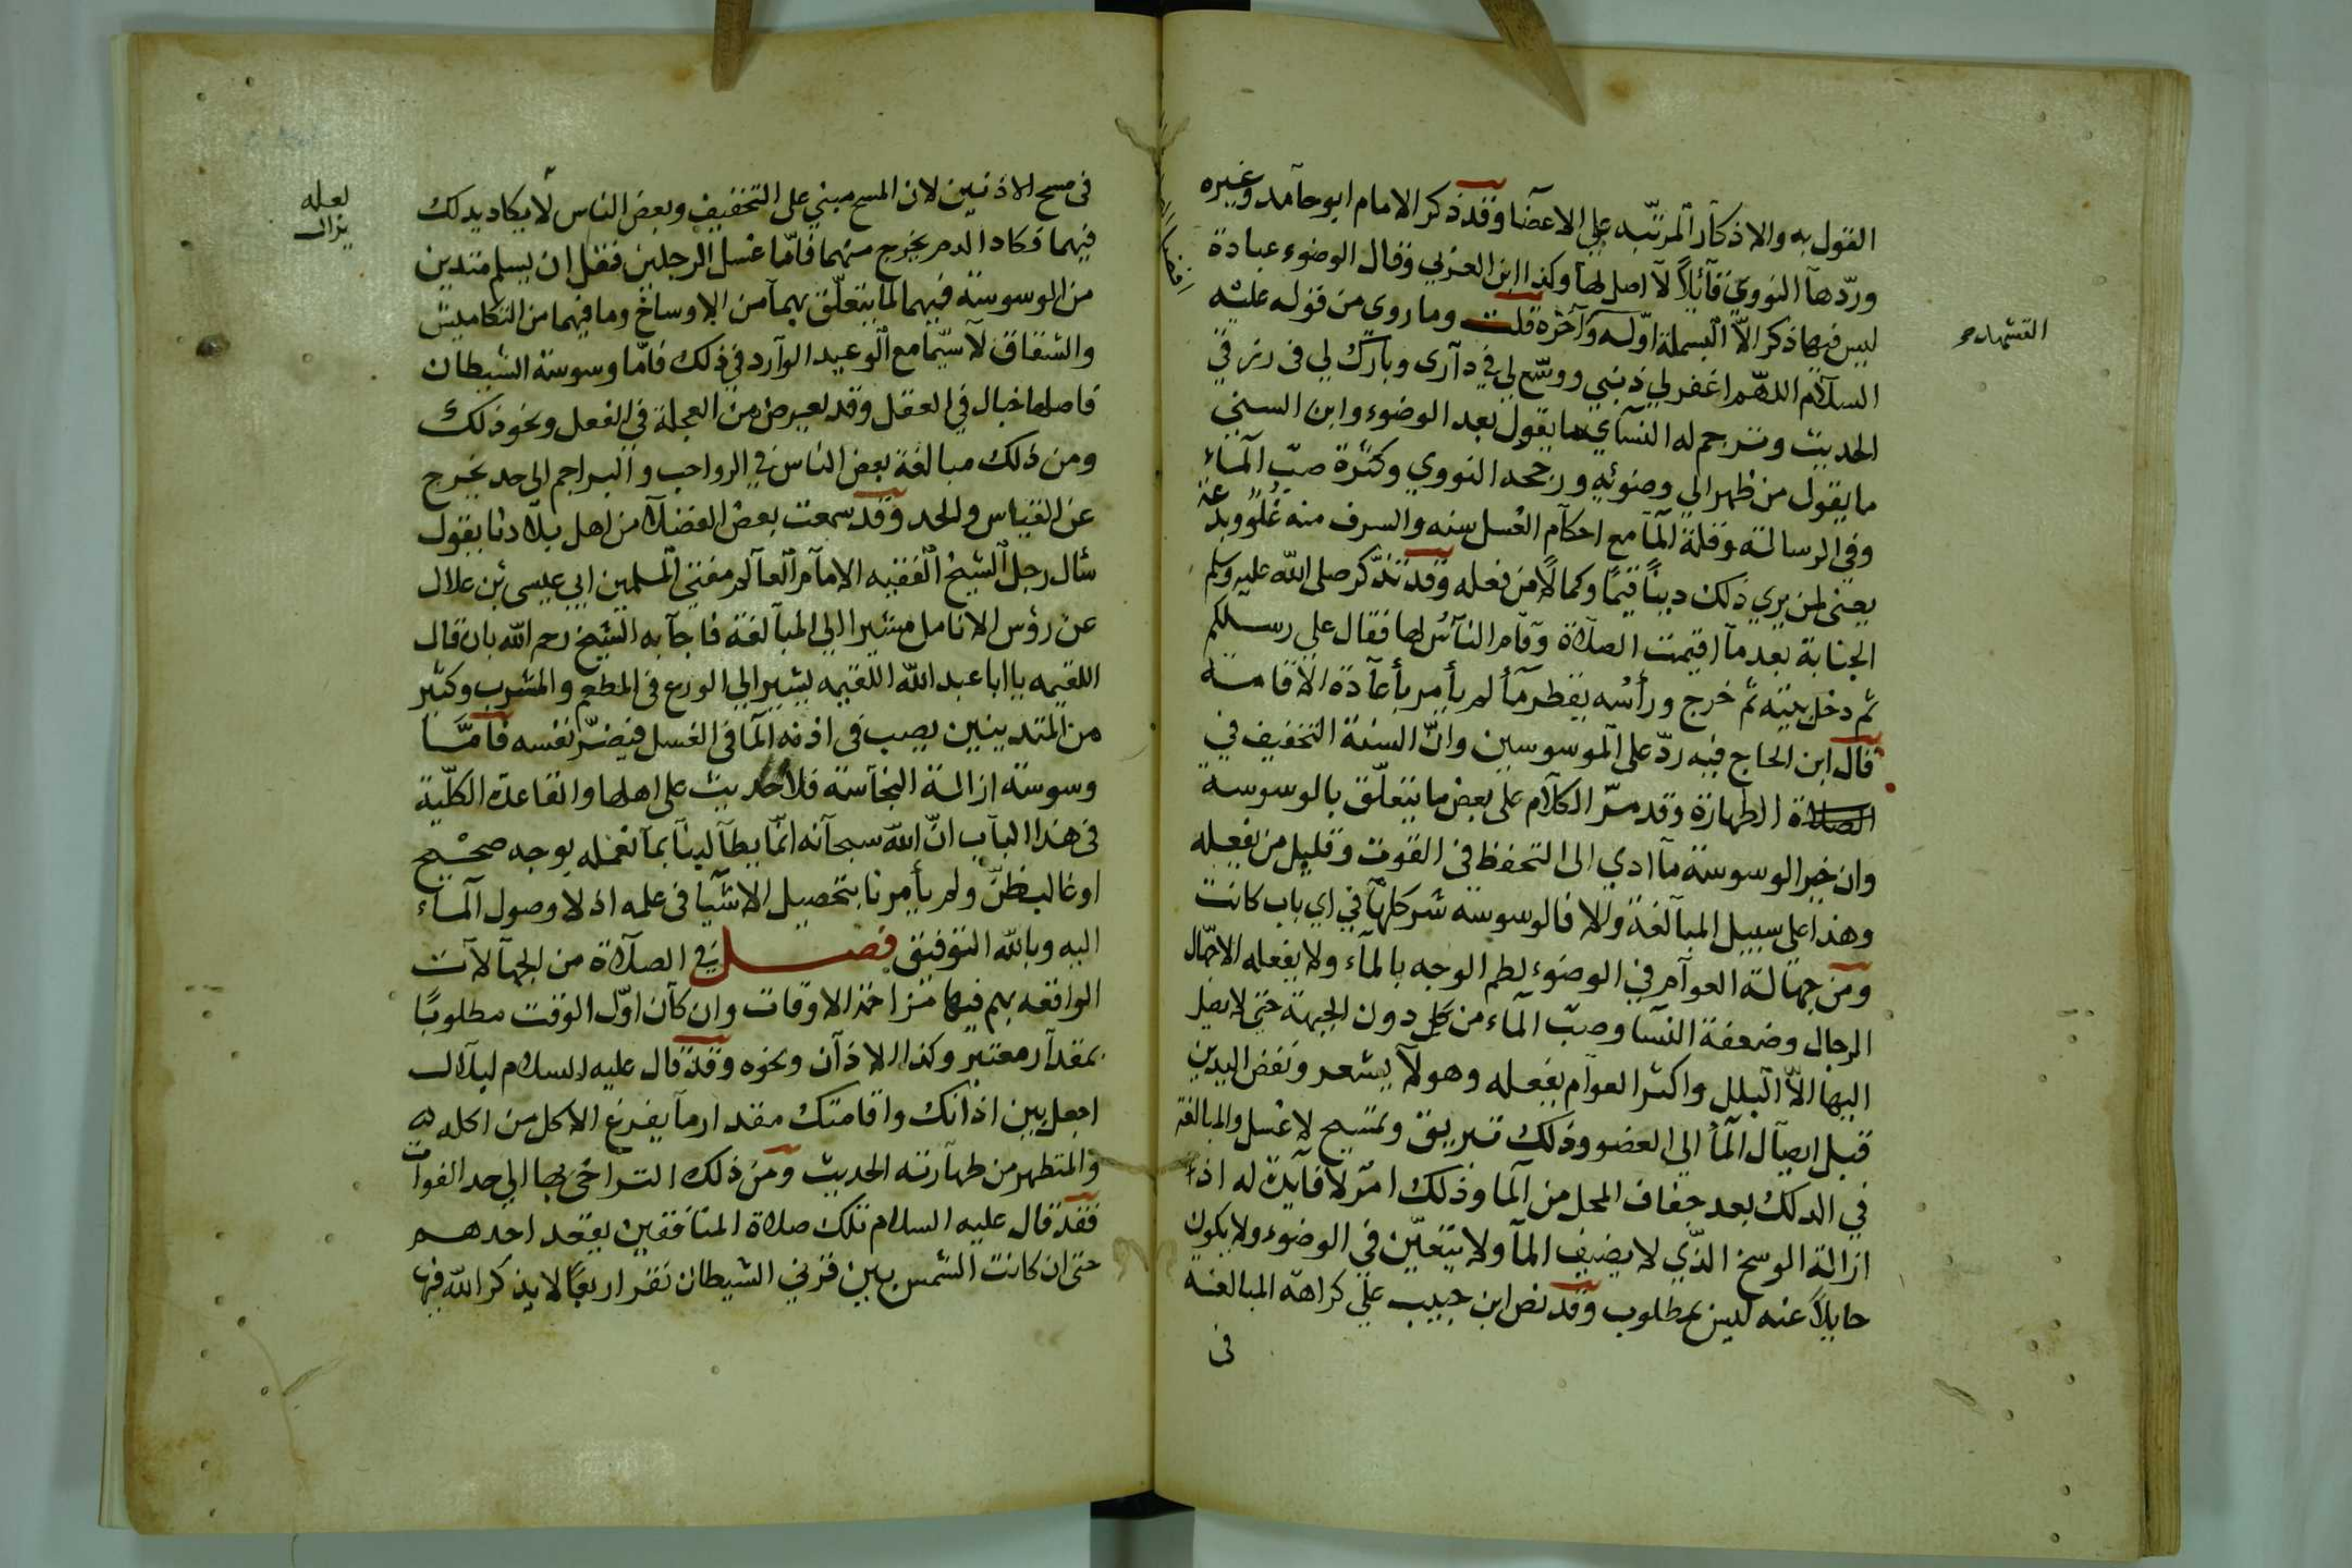 القول به والاذكار المرتّبه على الاعضا وقد ذكر الامام ابو حامد وغيره
وردّها النووي قائلاً لا اصل لها وكذا ابن العربي وقال الوضوء عبادة
ليس فيها ذكر الاّ البسملة اوّله وآخره قلت وما روى من قوله عليه
التشهد صح
السلام اللهّم اغفر لي ذنبي ووسّع لي في داري وبارك لي في رزقي
الحديث وترجم له النسآي ما يقول بعد الوضوء وابن السني
ما يقول من ظهراني وضوئه ورجحه النووي وكثرة صبّ المآء
وفي الرسالة وقلة المآ مع احكام الغسل سنه والسرف منه غلو وبدعة
يعني لمن يري ذلك دينًا قيمًا وكمالًا من فعله وقد تذّكر صلى الله عليه وسلم
الجنابة بعد ما اقيمت الصلاة وقام النآس لها فقال على رسلكم
ثم دخل بيته ثم خرج ورأسه يقطر مآ لم يأمر بأعادة الاقامة
قال ابن الحاج فيه ردّ على الموسوسين وانّ السنة التخفيف في
الصلاة الطهارة وقد مرّ الكلام على بعض ما يتعلّق بالوسوسة
وان خير الوسوسة ما ادي الى التحفظ في القوت وقليل من يفعله
وهذا على سبيل المبالغة والا فالوسوسه شر كلها في اي باب كانت
ومن جهالة العوام في الوضوء لطم الوجه بالمآء ولا يفعله الا جهّال
الرجال وضعفة النسآ وصبّ المآء من كل دون الجبهة حتى لا يصل
اليها الاّ البلل واكثر العوام يفعله وهو لا يشعر ونفض اليدين
قبل ايصال المآ الى العضو وذلك تبريق وتمسيح لا غسل والمبالغة
في الدلك بعد جفاف المحل من المآ وذلك امر لا فايدة له اذ
ازالة الوسخ الذّي لا يضيف المآ ولا يتعيّن في الوضوء ولا يكون
حايلاً عنه ليس بمطلوب وقد نص ابن حبيب على كراهة المبالغة
في
في مسح الاذنين لان المسح مبني على التخفيف وبعض الناس لا يكاد يدلك
لعله
يزال
فيهما فكاد الدم يخرج منهما فامّا غسل الرجلين فقل ان يسلم متدين
من الوسوسة فيهما لما يتعلّق بهما من الاوساخ وما فيهما من التكاميش
والشقاق لا سيّما مع الوعيد الوارد في ذلك فامّا وسوسة الشيطان
فاصلها خبال في العقل وقد يعرض من العجلة في الفعل ونحو ذلك
ومن ذلك مبالغة بعض الناس في الرواجب والبراجم الى حد يخرج
عن القياس والحد وقد سمعت بعض الفضلآ من اهل بلادنا يقول
سأل رجل الشيخ الفقيه الامام العالم مفتي المسلمين ابي عيسى بن علال
عن رؤس الانامل مشيرا الى المبالغة فاجابه الشيخ رحمه الله بان قال
اللقيمه يا ابا عبد الله اللقيمه يشير الى الورع في المطعم والمشرب وكثير
من المتدينين يصب في اذنه المآ في الغسل فيضرّ نفسه فامّا
وسوسة ازالة النجاسة فلا حديث على اهلها والقاعدة الكلّية
في هذا الباب انّ الله سبحانه انّما يطالبنا بما نعمله بوجه صحيح
او غالب ظنّ ولم يأمرنا بتحصيل الاشيا في علمه اذ لا وصول المآء
اليه وبالله التوفيق فصل في الصلاة من الجهالات
الواقعه بهم فيها مزاحمة الاوقات وان كان اوّل الوقت مطلوبًا
بمقدار معتبر وكذا الاذان ونحوه وقد قال عليه السلام لبلال
اجعل بين اذانك واقامتك مقدار ما يفرغ الاكل من اكله
والمتطهر من طهارته الحديث ومن ذلك التراخي بها الى حد الفوات
فقد قال عليه السلام تلك صلاة المنافقين يقعد احدهم
حتى ان كانت الشمس بين قرني الشيطان نقر اربعًا لا يذكر الله فيها